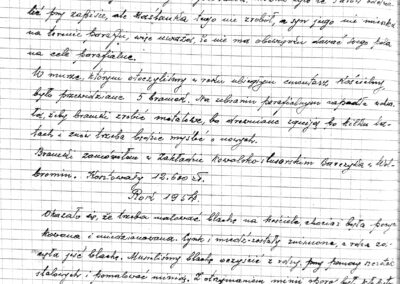 lić przy zapisie, ale Kaszanka tego nie zrobił, a syn jego nie mieszka
na terenie parafii, więc uważał, że nie ma obowiązku dawać swego pola
na cele parafialne.
W murze, którym otoczyliśmy w roku ubiegłym cmentarz Kościelny,
było przewidziane 5 bramek. Na zebraniu parafialnym zapadła uchwa-
ła, żeby bramki zrobić metalowe, bo drewniane zgniją po kilku la-
tach i znów trzeba będzie myśleć o nowych.
Bramki zamówiłem w zakładzie Kowalsko-ślusarskim
brominie. Kosztowały 12.600 zł.
Rok 1964.
Okazało się, że trzeba malować blachę na kościele, chociaż była
kowana i miedziowana. Cynk i miedź zostały zniszczone, a rdza za-
częła jeść blachę. Musieliśmy blachę oczyścić z rdzy przy pomocy szczotek
stalowych i pomalować minią. Z otrzymaniem minii